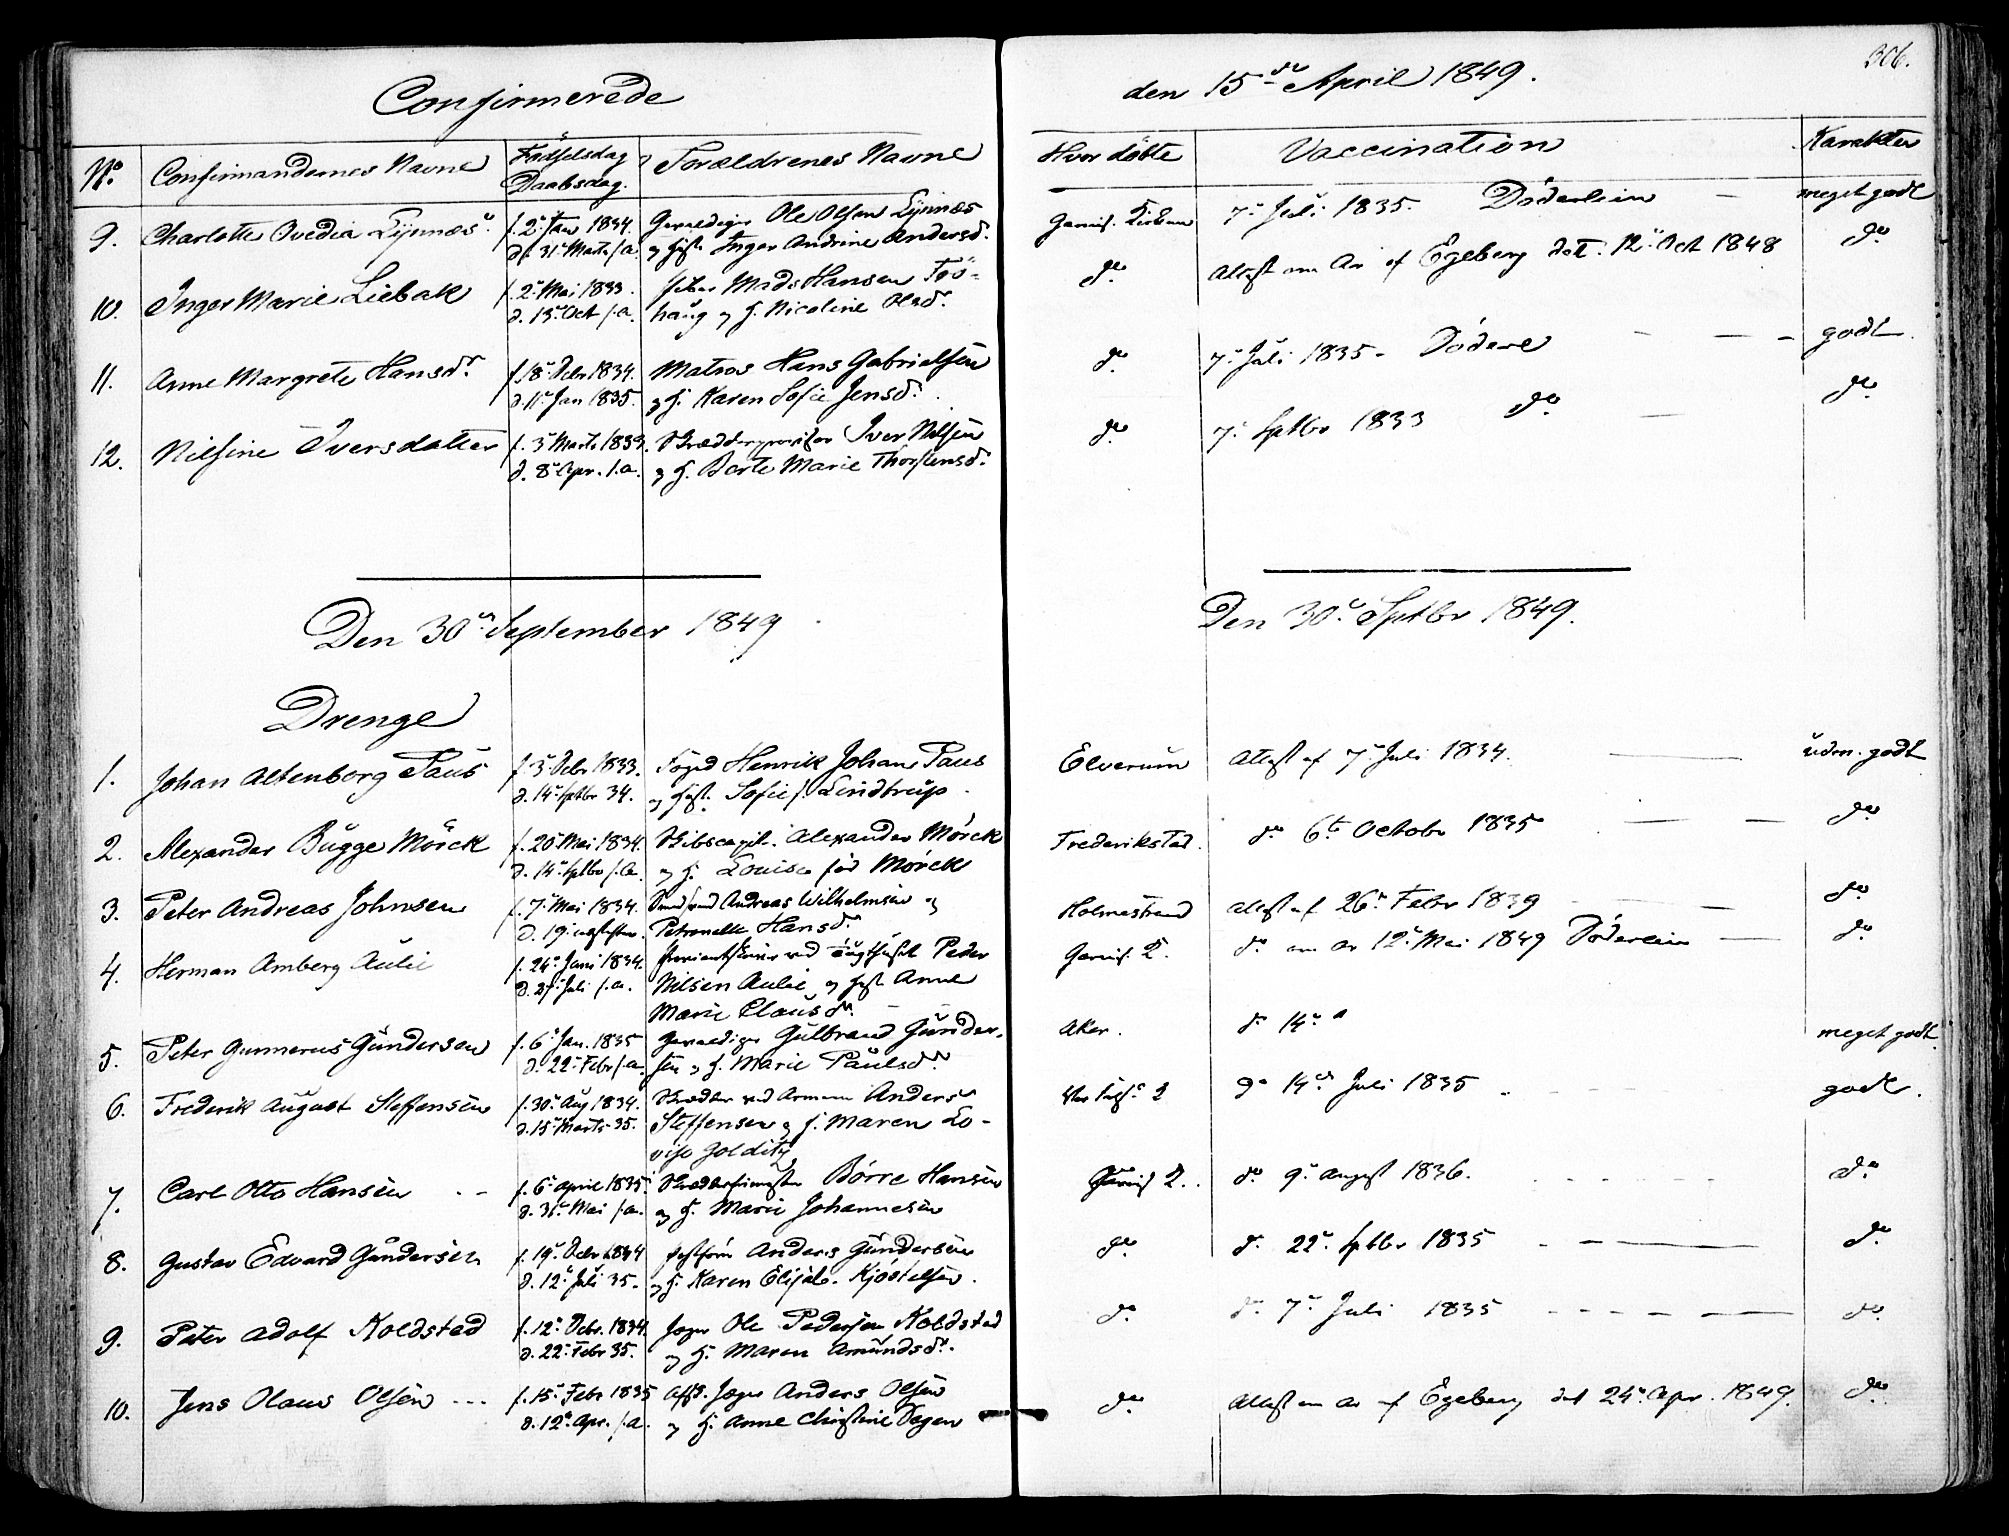 306.
Confirmerede
den 15de April 1849.
No. Confirmandernes Navne Fødselsdag Daabsdag. Forældrenes Navne Hvor døbte Vaccination Karakter
9. Charlotte Ovedia Lynnæs f. 2 Jan 1834. Gevaldiger Ole Olsen Lynnæs Garnis. Kirken 7 Juli 1835. Döderlein — meget godt
d. 31 Marts s.a. og Hust. Inger Andrine Andersd.
10. Inger Marie Liebak f. 2 Mai 1833. Mads Hansen do Attest om Ar af Egeberg dat. 12 Oct 1848 do
d. 13 Oct s.a. haug og H. Nicoline Olsd.
11. Anne Margrete Hansdr. f. 8 Decbr 1834. Matros Hans Gabrielsen do 7 Juli 1835. Döderl — — — godt
d. 11 Jan 1835. og H. Karen Sofie Jensd.
12. Nilsine Iversdatter f. 3 Marts 1833. Iver Nilsen do 7 Sptbr 1833 do — do
d. 8 Apr. s.a. og H. Berte Marie Thorstensd.
Den 30 September 1849
Den 30 Sptbr 1849.
Drenge
1. Johan Altenborg Paus f. 3 Decbr 1833. Foged Henrik Johan Paus Elverum Attest af 7 Juli 1834. — udm. godt
d. 14 Sptbr 34. og Hust. Sofie f. Lindtrup
2. Alexander Bugge Mörck f. 20 Mai 1834. Skibscapt. Alexander Mörck Frederikstad. do 6te Octobr 1835 — — — do
d. 14 Sptbr s.a. og H. Louise fød Mörck
3. Peter Andreas Johnsen f. 7 Mai 1834. Andreas Wilhelmsen og Holmestrand Attest af 26 Febr 1839 — — do
d. 19 Petronelle Hansdr.
4. Herman Amberg Aulie f. 24 Juni 1834. ved Tugthuset Peder Garnis. K. do om Ar 12 Mai 1849 Döderlein — do
d. 27 Juli s.a. Nilsen Aulie og Hust Anne
Marie Clausdr.
5. Peter Gunnerus Gundersen f. 6 Jan. 1835 Gevaldiger Gulbrand Gunder- Aker. do 14 meget godt
d. 22 Febr s.a. sen og H. Marie Paulsdr.
6. Frederik August Steffensen f. 30 Aug 1834. ved Armeen Anders do 14 Juli 1835 godt.
d. 15 Marts 35. Steffensen og H. Maren Lo-
vise Golditz
7. Carl Otto Hansen - - f. 6 April 1835. Børre Hansen Garnis K. do 9 August 1836. do
d. 31 Mai s.a. og H. Marie Johannesen
8. Gustav Edvard Gundersen f. 19 Decbr 1834 Anders Gundersen do do 22 Sptbr 1835 - - — do
d. 12 Juli 35. og H. Karen Elisab. Kjöstelsen.
9. Peter Adolf Koldstad f. 12 Decbr. 1834. Jæger Ole Pedersen Koldstad do do 7 Juli 1835 - - - - — do
d. 22 Febr 35. og H. Maren Amundsdr.
10. Jens Olaus Olsen - - - f. 15 Febr 1835 Afsk. Jæger Anders Olsen do Attest om Ar af Egeberg dat 24 Apr. 1849. do
d. 12 Apr. s.a. og H. Anne Christine Dagen